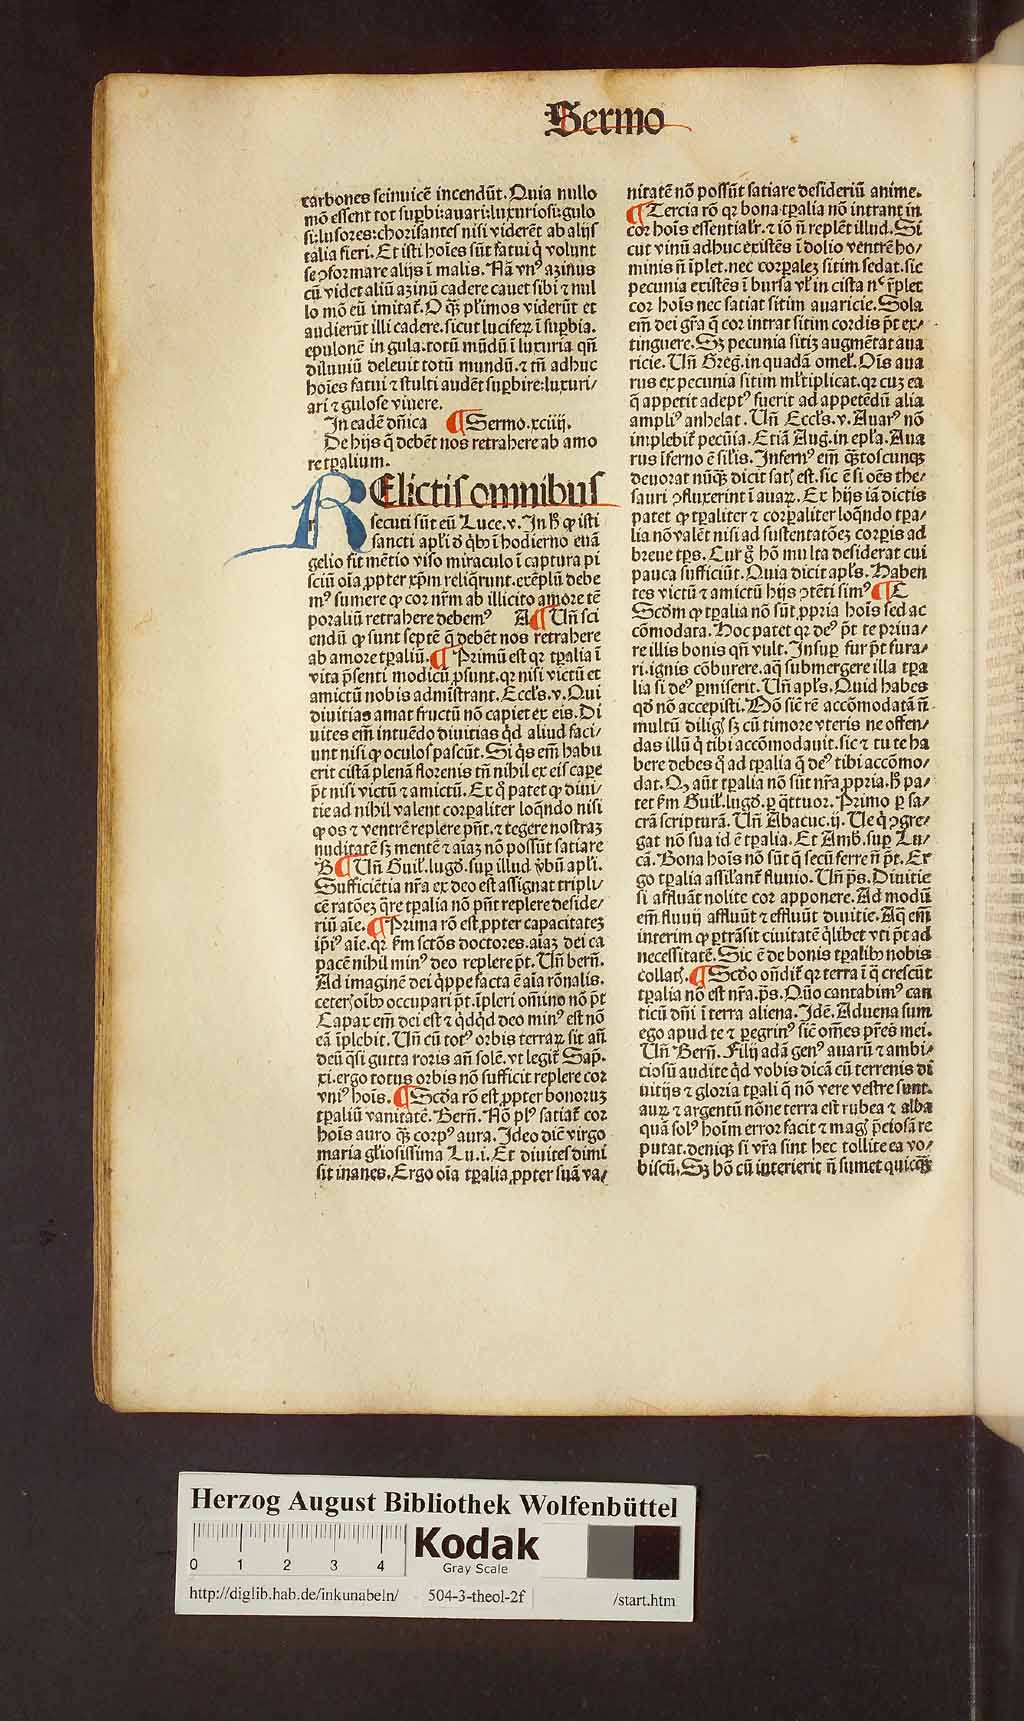 Sermo
carbones seinuicē incendūt. Quia nullo
mō essent tot supbi:auari:luxuriosi:gulo
si:lusores:chorisantes nisi viderēt ab alijs
talia fieri. Et isti hoīes sūt fatui q̇ volunt
se ꝯformare alijs ī malis. Nā vnꝰ azinus
cū videt aliū azinū cadere cauet sibi ⁊ nul
lo mō eū imitat̄. O qꝫ pl̄imos viderūt et
audierūt illi cadere. sicut luciferꝝ ī supbia.
epulonē in gula: totū mūdū ī luxuria qn̄
diluuiū deleuit totū mundū. ⁊ tn̄ adhuc
hoīes fatui ⁊ stulti audēt supbire: luxuri/
ari ⁊ gulose viuere.
In eadē dn̄ica ¶ Sermo. xciiij.
De hijs q̄ debēt nos retrahere ab amo
re tꝑalium.
RElictis omnibus
secuti sūt eū Luce. v. In hͦ ꝙ isti
sancti apl̄i ō q̇bꝰ ī hodierno euā
gelio fit mētio viso miraculo ī captura pi
sciū oīa ꝓpter xp̄m reliq̄runt. exēplū debe
mꝰ sumere ꝙ cor nr̄m ab illicito amore tē
poraliū retrahere debemꝰ A ¶ Un̄ sci
endū ꝙ sunt septē q̄ debēt nos retrahere
ab amore tꝑaliū. ¶ Primū est qꝛ tꝑalia ī
vita p̄senti modicū ꝓsunt. qꝛ nisi victū et
amictū nobis admīstrant. Eccl̄s. v. Qui
diuitias amat fructū nō capiet ex eis. Di
uites em̄ intuēdo diuitias q̇d aliud faci/
unt nisi ꝙ oculos pascūt. Si q̇s em̄ habu
erit cistā plenā florenis tn̄ nihil ex eis caꝑe
pt̄ nisi victū ⁊ amictū. Ex q̇ patet ꝙ diui/
tie ad nihil valent corꝑaliter loq̄ndo nisi
ꝙ os ⁊ ventrē replere pn̄t. ⁊ tegere nostraꝫ
nuditatē sꝫ mentē ⁊ aīaꝫ nō possūt satiare
B ¶ Un̄ Guil̄. lugd̄. sup illud v̄bū apl̄i.
Sufficiētia nr̄a ex deo est assignat tripli/
cē ratōeꝫ q̄re tꝑalia nō pn̄t replere deside/
riū aīe. ¶ Prima rō est ꝓpter capacitateꝫ
ip̄iꝰ aīe. qꝛ fm̄ sctōs doctores. aīaꝫ dei ca
pacē nihil minꝰ deo replere pt̄. Un̄ bern̄.
Ad imaginē dei q̇ppe facta ē aīa rōnalis.
ceterꝭ oībꝰ occupari pt̄. īpleri om̄ino nō pt̄
Capax em̄ dei est ⁊ q̇dq̇d deo minꝰ est nō
eā īplebit. Un̄ cū totꝰ orbis terraꝝ sit an̄
deū q̇si gutta roris an̄ solē. vt legit̄ Sap̄.
xi. ergo totus orbis nō sufficit replere cor
vniꝰ hoīs. ¶ Scd̄a rō est ꝓpter bonoruꝫ
tꝑaliū vanitatē. Bern̄. Nō plꝰ satiat̄ cor
hoīs auro qꝫ corpꝰ aura. Ideo dic̄ virgo
maria gl̄iosissima Lu. i. Et diuites dimi
sit inanes. Ergo oīa tꝑalia ꝓpter suā va/
nitatē nō possūt satiare desideriū anime.
¶ Tercia rō qꝛ bona tꝑalia nō intrant in
cor hoīs essentialr̄. ⁊ iō n̄ replēt illud. Si
cut vinū adhuc existēs ī dolio ventrē ho/
minis n̄ īplet. nec corꝑaleꝫ sitim sedat. sic
pecunia existēs ī bursa vl̄ in cista nͨ r̄plet
cor hoīs nec satiat sitim auaricie. Sola
em̄ dei gr̄a q̄ cor intrat sitim cordis pt̄ ex/
tinguere. Sꝫ pecunia sitiꝫ augmētat aua
ricie. Un̄ Greḡ. in quadā omel̄. Oīs aua
rus ex pecunia sitim ml̄tiplicat. qꝛ cuꝫ ea
q̄ appetit adeptꝰ fuerit ad appetēdū alia
ampliꝰ anhelat. Un̄ Eccl̄s. v. Auarꝰ nō
implebit̄ pecūia. Etiā Auḡ. in epl̄a. Aua
rus īferno ē sil̄is. Infernꝰ em̄ qꝫtoscunqꝫ
deuorat nūqꝫ dicit satꝭ est. sic ē si oēs the/
sauri ꝯfluxerint ī auaꝝ. Ex hijs iā dictis
patet ꝙ tꝑaliter ⁊ corꝑaliter loq̄ndo tꝑa/
lia nō valēt nisi ad sustentatōeꝫ corꝑis ad
breue tꝑs. Cur g̊ hō multa desiderat cui
pauca sufficiūt. Quia dicit apl̄s. Haben
tes victū ⁊ amictū hijs ꝯtēti simꝰ ¶ C
Scd̄m ꝙ tꝑalia nō sūt ꝓpria hoīs sed ac
cōmodata. Hoc patet qꝛ deꝰ pt̄ te priua/
re illis bonis qn̄ vult. Insup fur pt̄ fura/
ri. ignis cōburere. aq̄ submergere illa tꝑa
lia si deꝰ ꝑmiserit. Un̄ apl̄s. Quid habes
qd̄ nō accepisti. Hō sic̄ rē accōmodatā n̄
multū diligꝭ sꝫ cū timore vteris ne offen/
das illū q̇ tibi accōmodauit. sic ⁊ tu te ha
bere debes q̇ ad tꝑalia q̄ deꝰ tibi accōmo/
dat. Qꝙ aūt tꝑalia nō sūt nr̄a ꝓpria. hͦ pa/
tet fm̄ Guil̄. lugd̄. ꝑ q̄ttuor. Primo ꝑ sa/
crā scripturā. Un̄ Abacuc. ij. Ue q̇ ꝯgre/
gat nō sua id ē tꝑalia. Et Amb̄. sup Lu/
cā. Bona hoīs nō sūt q̄ secū ferre n̄ pt̄. Er
go tꝑalia assil̄ant̄ fluuio. Un̄ ps̄. Diuitie
si affluāt nolite cor apponere. Ad modū
em̄ fluuij affluūt ⁊ effluūt diuitie. Aq̄ em̄
interim ꝙ ꝑtrāsit ciuitatē q̇libet vti pt̄ ad
necessitatē. Sic ē de bonis tꝑalibꝰ nobis
collatꝭ. ¶ Scd̄o on̄dit̄ qꝛ terra ī q̄ crescūt
tꝑalia nō est nr̄a. ps̄. Quō cantabimꝰ can
ticū dn̄i ī terra aliena. Idē. Aduena sum
ego apud te ⁊ ꝑegrinꝰ sic̄ om̄es pr̄es mei.
Un̄ Bern̄. Filij adā genꝰ auarū ⁊ ambi/
ciosū audite q̇d vobis dicā cū terrenis di
uitijs ⁊ gloria tꝑali q̄ nō vere vestre sunt.
auꝝ ⁊ argentū nōne terra est rubea ⁊ alba
quā solꝰ hoīm error facit ⁊ magꝭ p̄ciosā re
putat. deniqꝫ si vr̄a sint hec tollite ea vo/
biscū. Sꝫ hō cū interierit n̄ sumet quicqꝫ
Herzog August Bibliothek Wolfenbüttel
0 1 2 3 4
Kodak
Gray Scale
http://diglib.hab.de/inkunabeln/ 504-3-theol-2f /start.htm